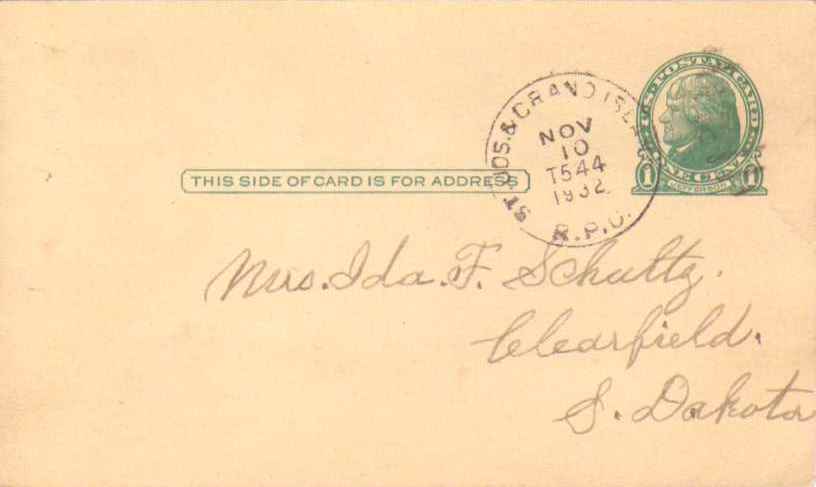 U.S. POSTAL CARD
ONE CENT
1 JEFFERSON 1
ST. JOS. & GRAND ISL
NOV
10
T544
1932
R.P.O.
THIS SIDE OF CARD IS FOR ADDRESS
Mrs. Ida. F. Schultz.
Clearfield.
S. Dakota